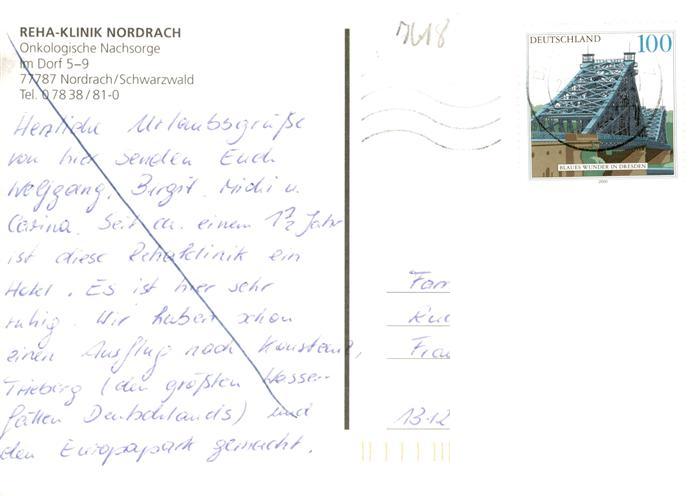 REHA-KLINIK NORDRACH
Onkologische Nachsorge
Im Dorf 5–9
77787 Nordrach/Schwarzwald
Tel. 0 78 38 / 81-0
Herzliche Urlaubsgrüße
von hier senden Euch
Wolfgang, Birgit, Michi u.
Carina. Seit ca. einem 1/2 Jahr
ist diese Rehaklinik ein
Hotel. Es ist hier sehr
ruhig. Wir haben schon
einen Ausflug nach Konstanz,
Trieberg (den größten Wasser-
fällen Deutschlands) und
den Europapark gemacht.
7618
DEUTSCHLAND 100
BLAUES WUNDER IN DRESDEN
2000
Fam
13-12